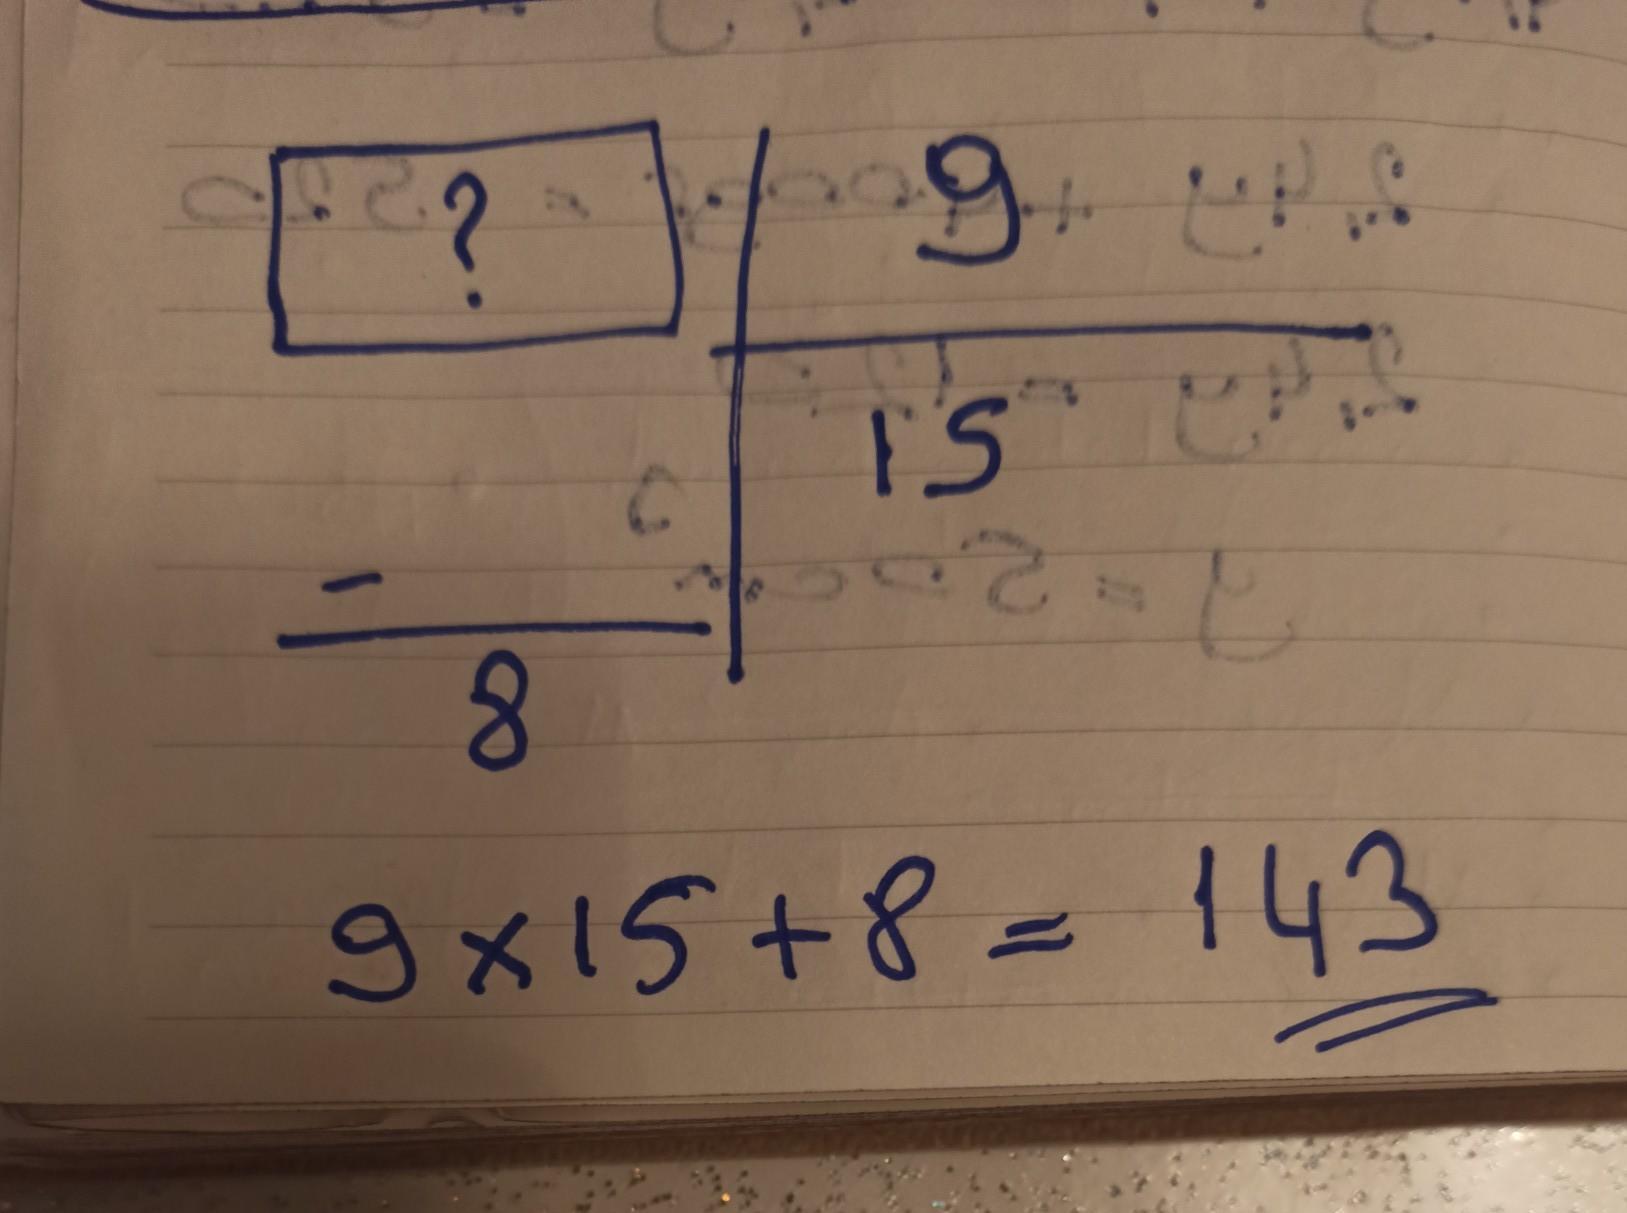 ? 9
15
-
8
9×15+8= 143